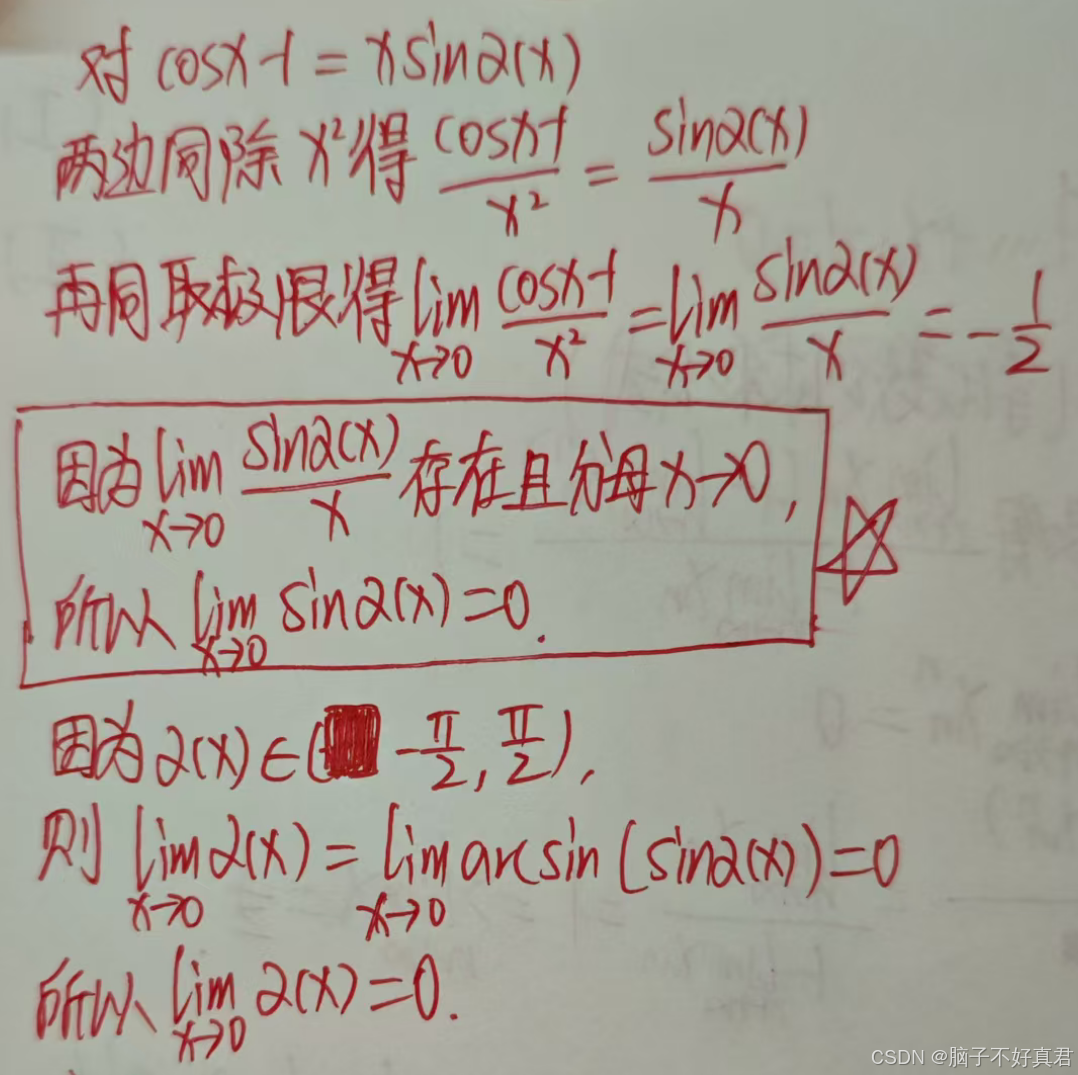 对 cosx-1 = xsinα(x)
两边同除 x²得 (cosx-1)/x² = sinα(x)/x
再同取极限得 lim_{x→0} (cosx-1)/x² = lim_{x→0} sinα(x)/x = -1/2
因为 lim_{x→0} sinα(x)/x 存在且分母 x→0,
所以 lim_{x→0} sinα(x)=0.
因为 α(x)∈( -π/2, π/2 ),
则 lim_{x→0} α(x) = lim_{x→0} arcsin (sinα(x)) = 0
所以 lim_{x→0} α(x)=0.
CSDN @脑子不好真君